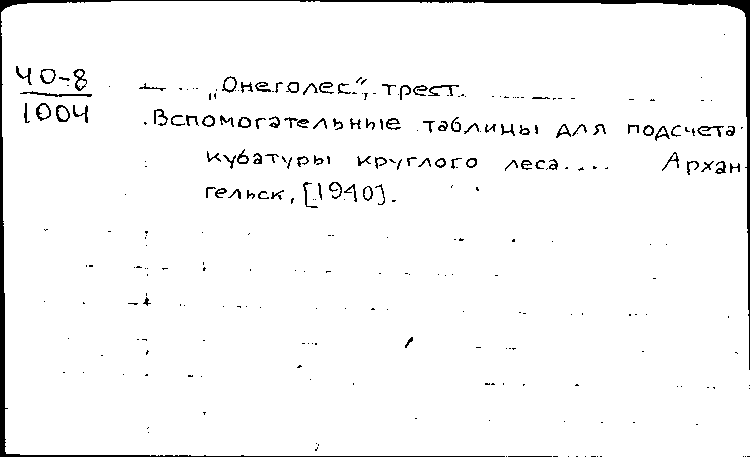 40-8
1004
„Онеголес“, трест.
Вспомогательные таблицы для подсчета
кубатуры круглого леса.... Архан-
гельск, [1940].